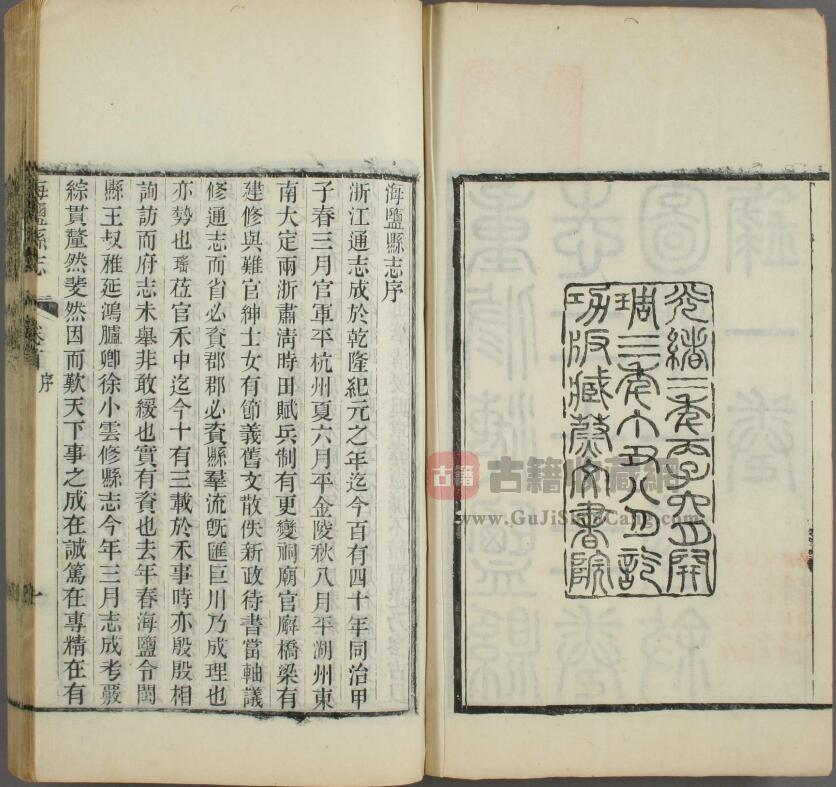 光緒二年丙子六月開
琱三年丁丑八月訖
功版臧蔚文書院
古籍收藏網
www.GuJiShouCang.com
海鹽縣志序
浙江通志成於乾隆紀元之年迄今百有四十年同治甲
子春三月官軍平杭州夏六月平金陵秋八月平湖州東
南大定兩浙肅淸時田賦兵制有更變祠廟官廨橋梁有
建修與難官紳士女有節義舊文散佚新政待書當軸議
修通志而省必資郡郡必資縣羣流旣匯巨川乃成理也
亦勢也瑤莅官禾中迄今十有三載於禾事時亦殷殷相
詢訪而府志未舉非敢緩也實有資也去年春海鹽令閩
縣王叔雅延鴻臚卿徐小雲修縣志今年三月志成考覈
綜貫釐然斐然因而歎天下事之成在誠篤在專精在有
海鹽縣志
卷首
序
一